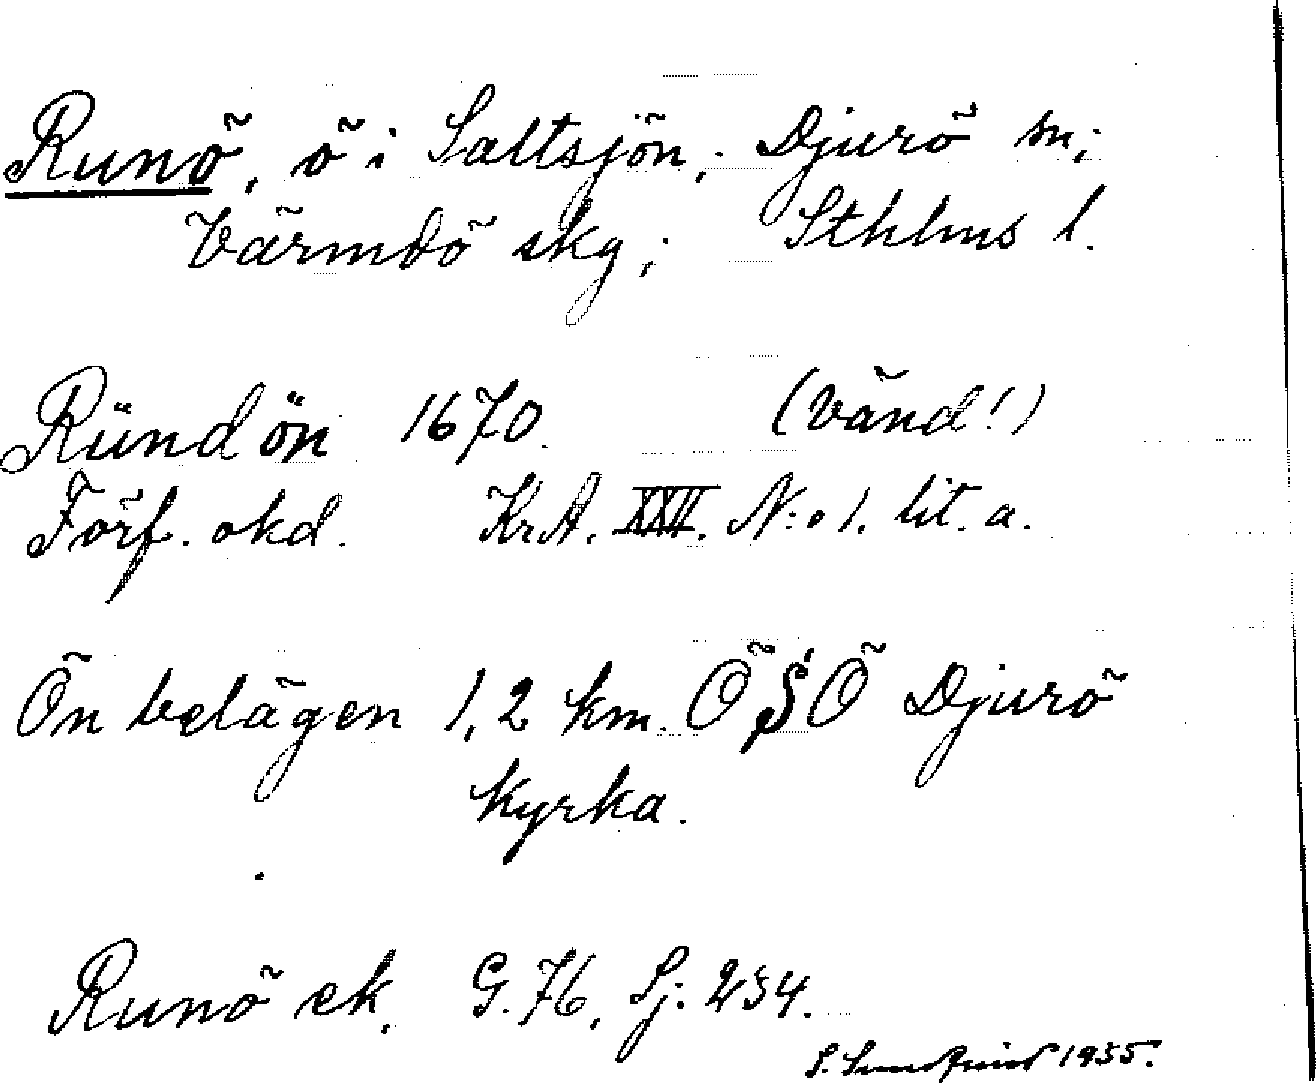 Runö, ö i Saltsjön; Djurö sn;
Värmdö skg; Sthlms l.
Ründön 1670. (Vänd!)
Förf. okd. KrA. XXII. N:o 1. lit. a.
Ön belägen 1,2 km. ÖSÖ Djurö
kyrka.
Runö ek. G. 76, Sj. 234.
1955.